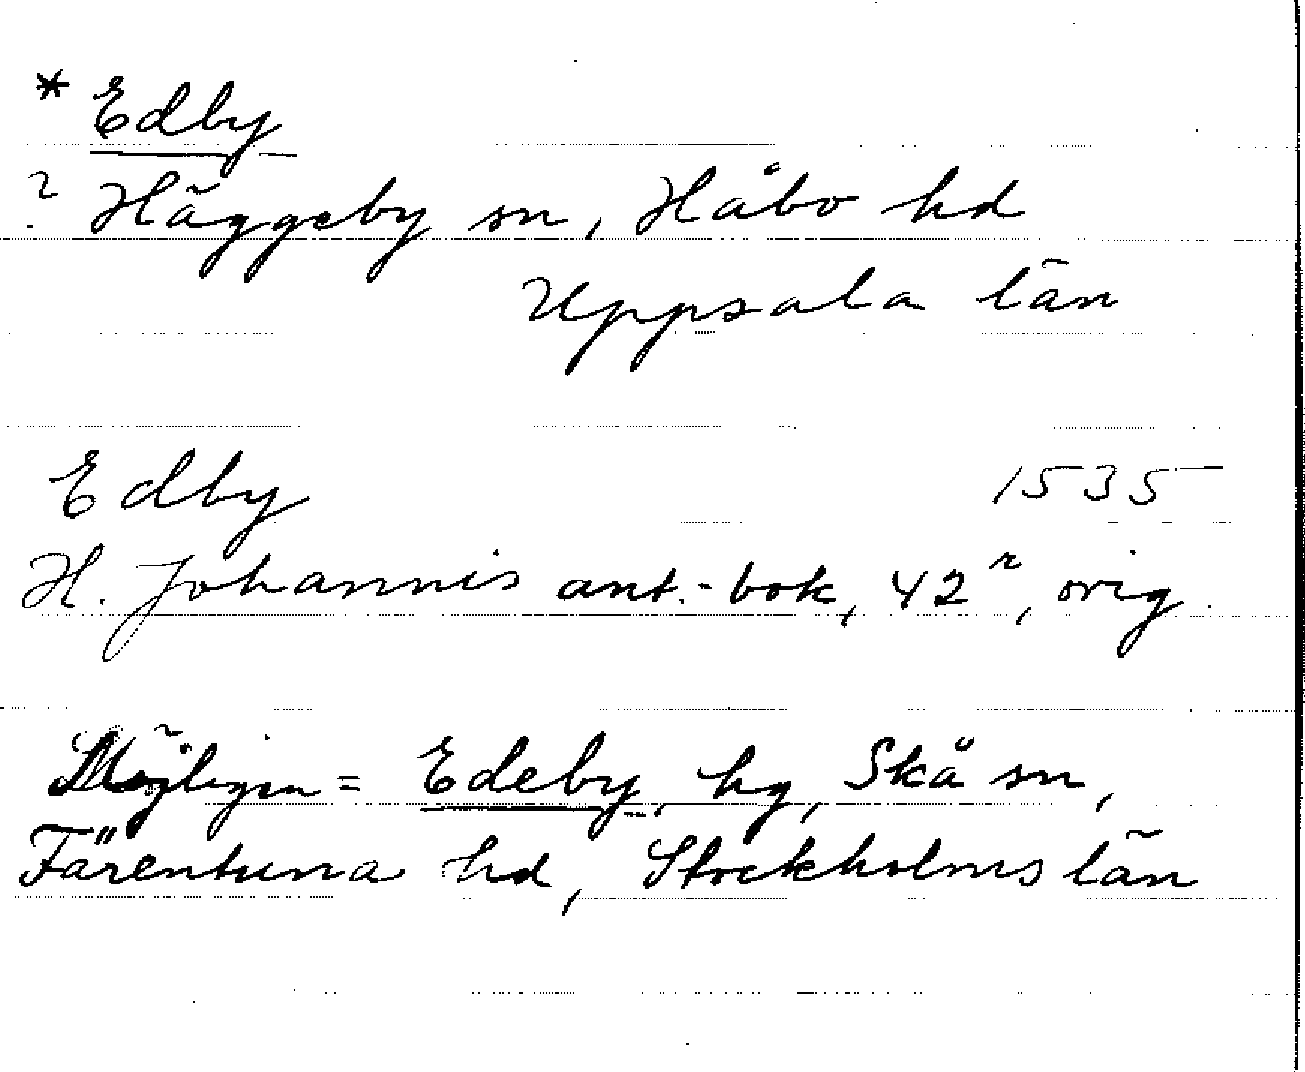 * Edby
? Häggeby sn, Håbo hd
Uppsala län
Edby 1535
H. Johannis ant.-bok, 42r, orig.
Möjligen = Edeby, hg, Skå sn,
Färentuna hd, Stockholms län